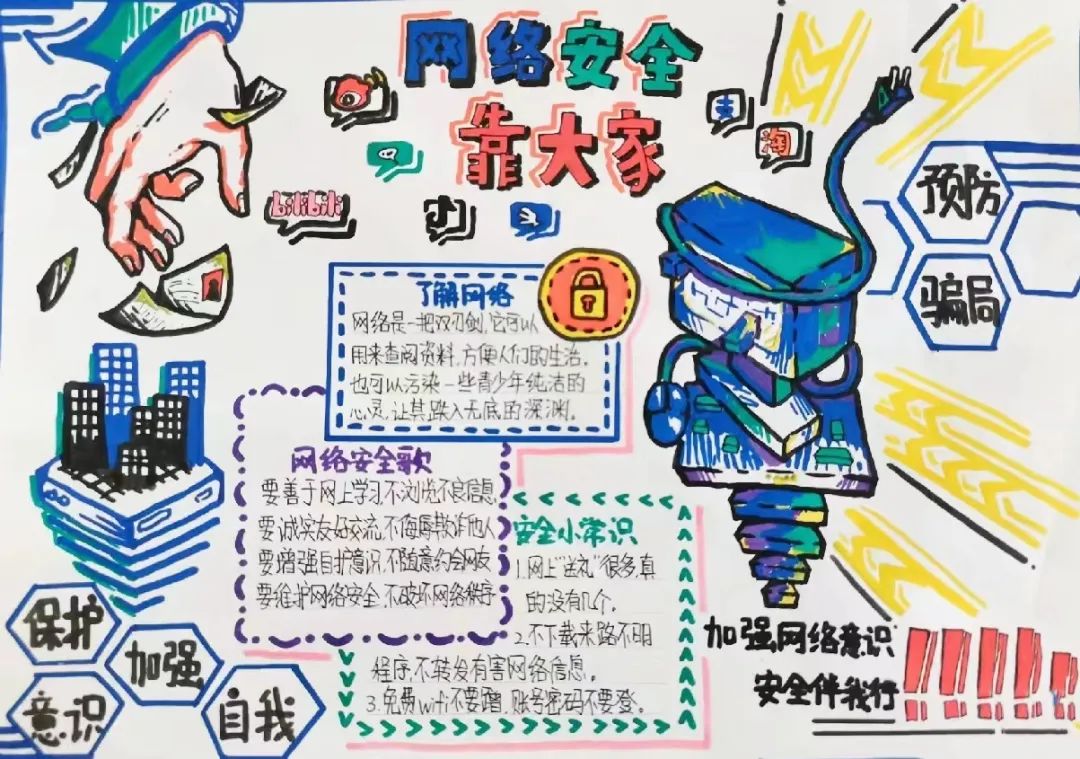 网络安全
靠大家
bilibili
支
淘
预防
骗局
了解网络
网络是一把双刃剑,它可以
用来查阅资料,方便人们的生活,
也可以污染一些青少年纯洁的
心灵,让其跌入无底的深渊。
网络安全歌
要善于网上学习,不浏览不良信息
要诚实友好交流,不侮辱欺诈他人
要增强自护意识,不随意约会网友
要维护网络安全,不破坏网络秩序
安全小常识
1.网上“送礼”很多,真
的没有几个。
2.不下载来路不明
程序,不转发有害网络信息。
3.免费wifi不要蹭,账号密码不要登。
保护
加强
意识
自我
加强网络意识
安全伴我行!!!!!